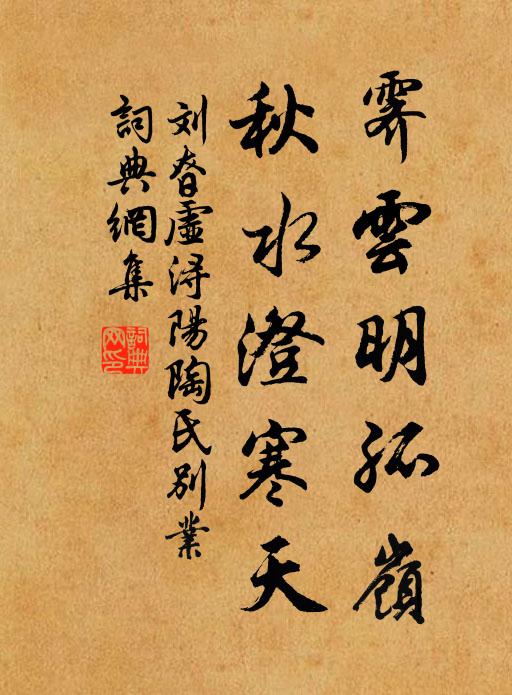 霽雲明孤嶺
秋水澄寒天
刘眘虛潯陽陶氏别業
詞典網集
詞典网印